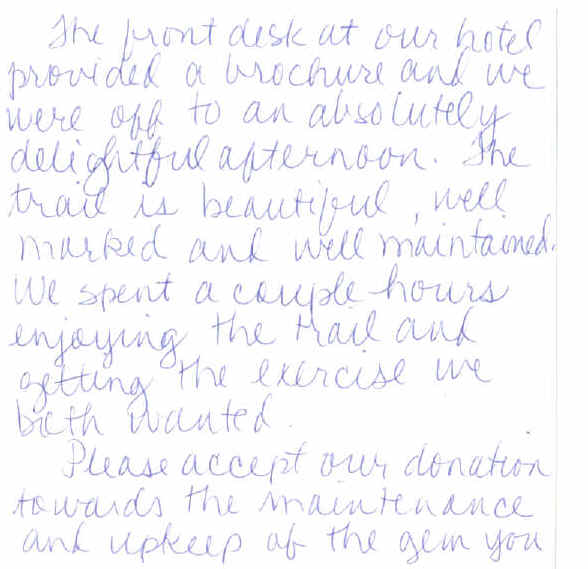 The front desk at our hotel
provided a brochure and we
were off to an absolutely
delightful afternoon. The
trail is beautiful, well
marked and well maintained.
We spent a couple hours
enjoying the trail and
getting the exercise we
both wanted.
Please accept our donation
towards the maintenance
and upkeep of the gem you